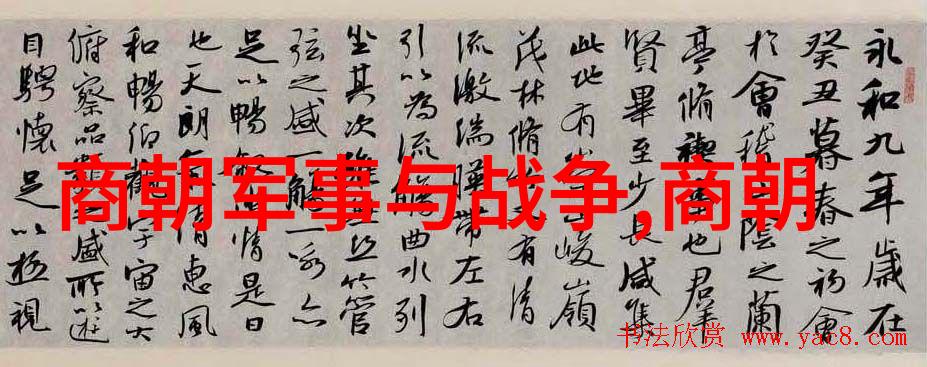 永和九年歲在
癸丑暮春之初會
於會陰之蘭
亭脩禊也羣
賢畢至少長咸集
此地有峻嶺
茂林脩有清
流激湍暎帶左右
引以為流觴曲水列
坐其次竹管
弦之盛一觴一詠亦
足以暢情是日
也天朗清惠風
和暢仰觀宇宙之大
俯察品類盛所以遊
目騁懷足以極視
商朝军事与战争,商朝
书法欣赏 www.yac8.com